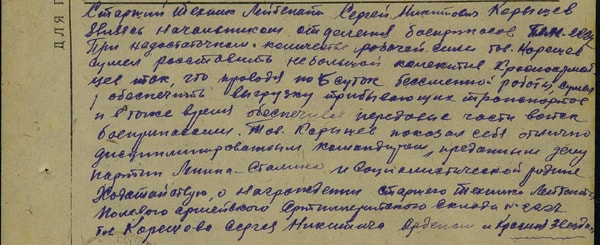 ДЛЯ П
Старший Техник Лейтенант Сергей Никитович Карышев
являясь Начальником отделения боеприпасов
При недостаточном количестве рабочей силы тов. Карышев
сумел расставить небольшой коллектив Красноармей
цев так, что проводя по 5 суток бессменной работы, сумел
обеспечить выгрузку прибывающих транспортов
и в тоже время обеспечивал передовые части войск
боеприпасами. Тов. Карышев показал себя отлично
дисциплинированным командиром, преданным делу
партии Ленина-Сталина и Социалистической родине
Ходатайствую, о награждении старшего Техника Лейтенанта
Полевого армейского Артиллерийского Склада №
тов. Сергея Никитича Орденом и Красная Звезда